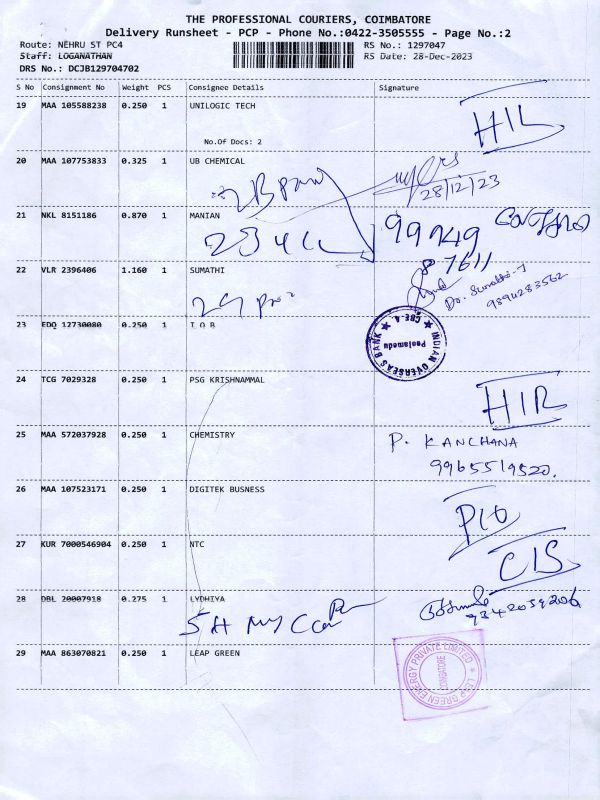 THE PROFESSIONAL COURIERS, COIMBATORE
Delivery Runsheet - PCP - Phone No.:0422-3505555 - Page No.:2
Route: NEHRU ST PC4 RS No.: 1297047
Staff: LOGANATHAN RS Date: 28-Dec-2023
DRS No.: DCJB129704702
S No Consignment No Weight PCS Consignee Details Signature
19 MAA 105588238 0.250 1 UNILOGIC TECH
No.Of Docs: 2
20 MAA 107753833 0.325 1 UB CHEMICAL
28/12/23
21 NKL 8151186 0.870 1 MANIAN
99949
87611
22 VLR 2396406 1.160 1 SUMATHI
Dr. Sumathi.T
9894283562
23 EDQ 12730080 0.250 1 I O B
INDIAN OVERSEAS BANK
Peelamedu
CBE-4
24 TCG 7029328 0.250 1 PSG KRISHNAMMAL
25 MAA 572037928 0.250 1 CHEMISTRY P. KANCHANA
9965519520.
26 MAA 107523171 0.250 1 DIGITEK BUSNESS
27 KUR 7000546904 0.250 1 NTC
28 DBL 20007918 0.275 1 LYDHIYA
9342059206
29 MAA 863070821 0.250 1 LEAP GREEN
LEAP GREEN ENERGY PRIVATE LIMITED
COIMBATORE